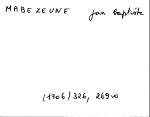 MABEZEUNE jean baptiste
(1706/326, 269vo